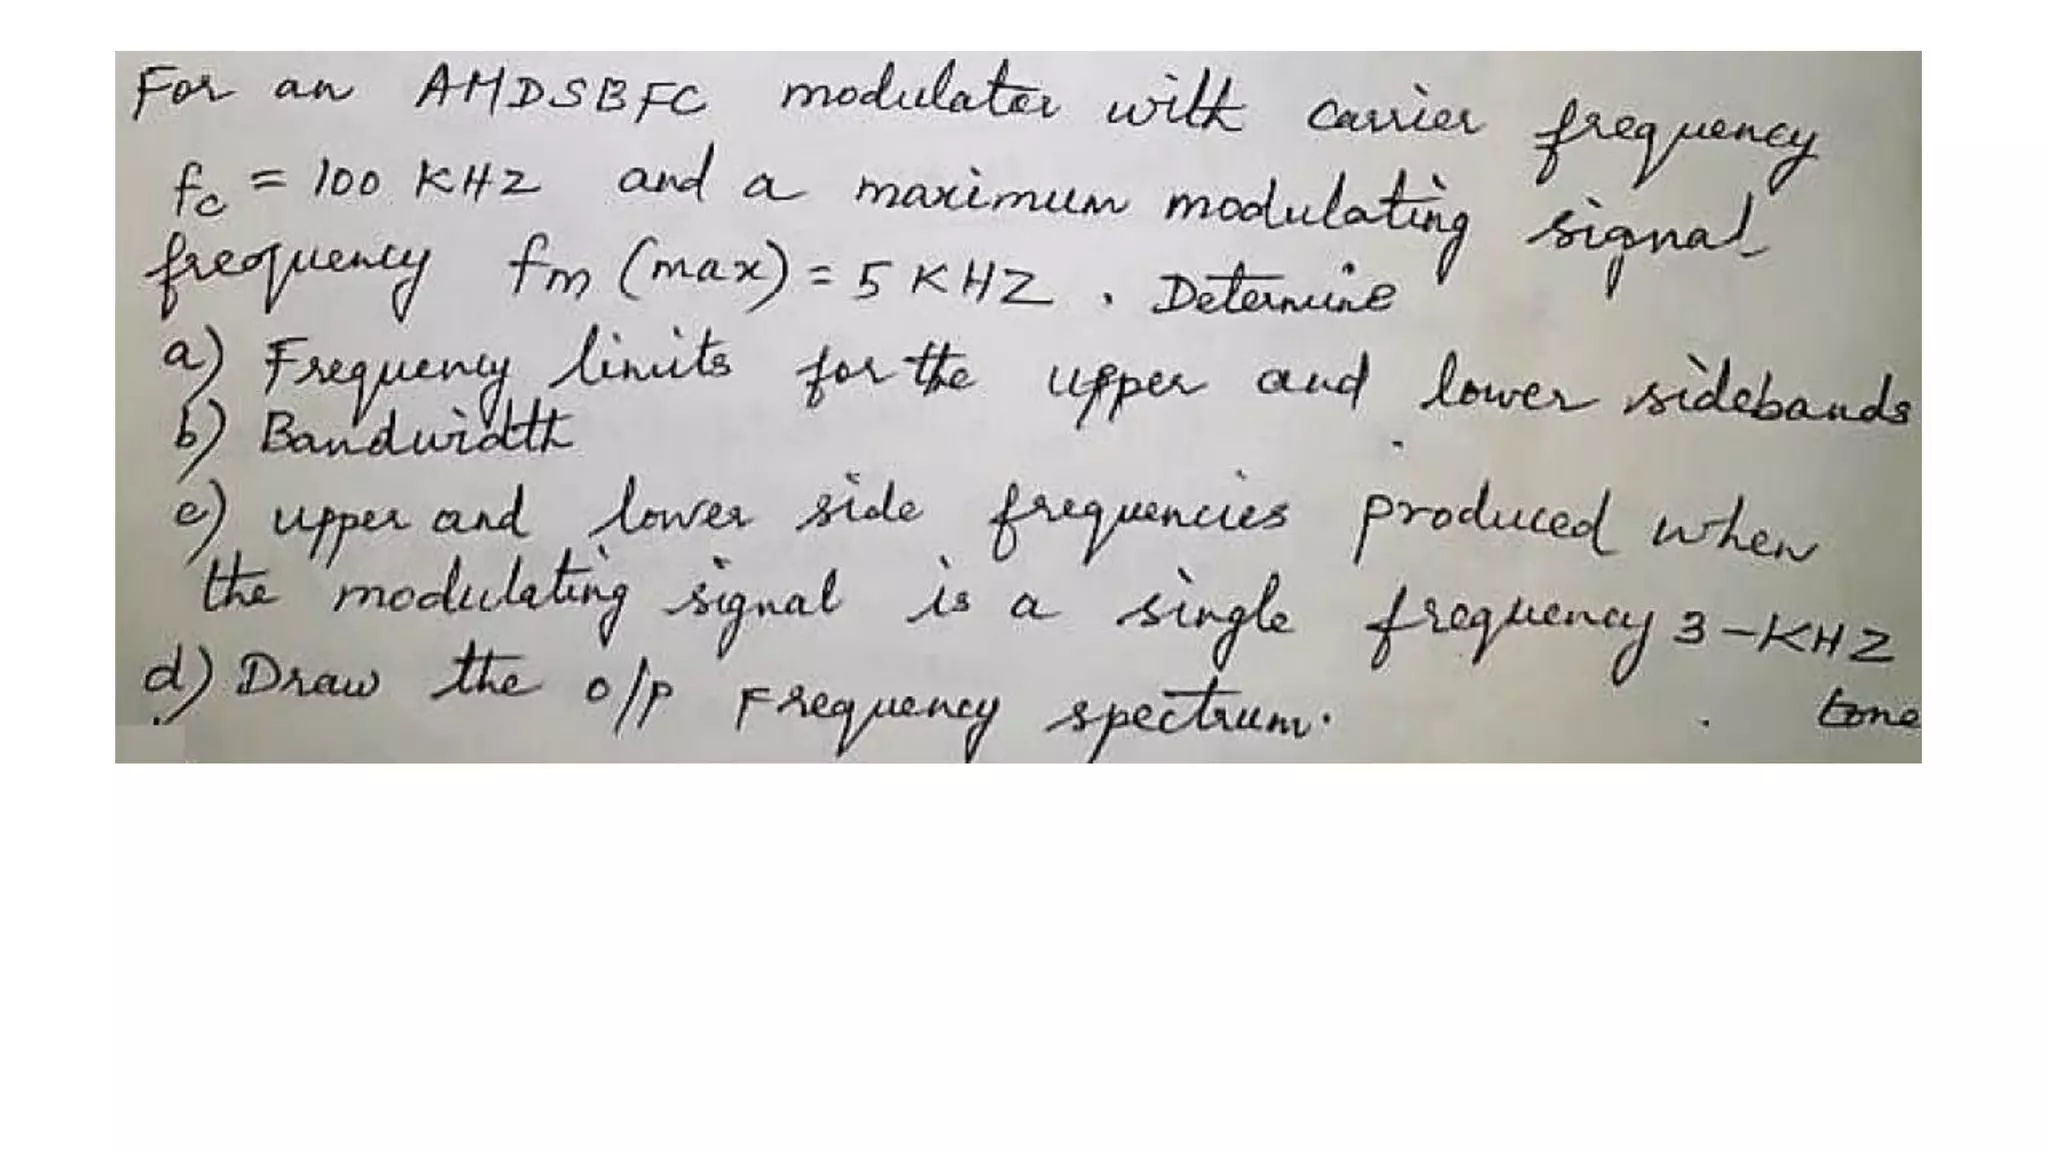 For an AMDSBFC modulator with carrier frequency
fc = 100 KHZ and a maximum modulating signal
frequency fm (max) = 5 KHZ . Determine
a) Frequency limits for the upper and lower sidebands
b) Bandwidth
c) upper and lower side frequencies produced when
the modulating signal is a single frequency 3-KHZ
tone
d) Draw the o/p Frequency spectrum.